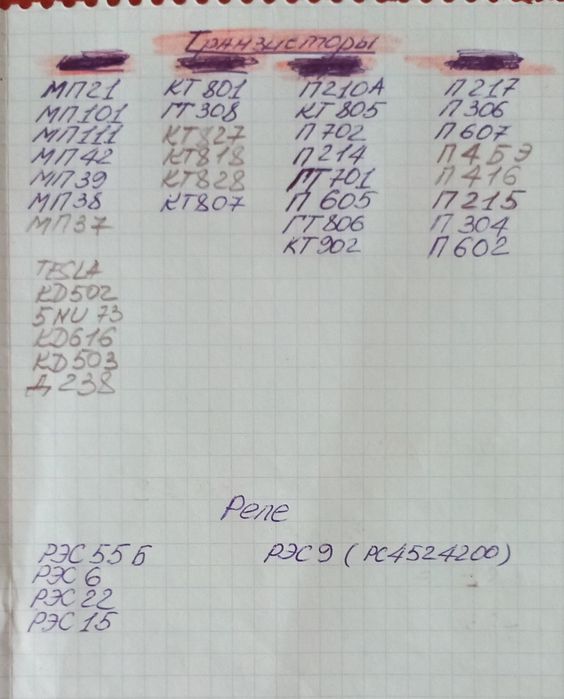 Транзисторы
МП21 КТ801 П210А П217
МП101 ГТ308 КТ805 П306
МП111 КТ827 П702 П607
МП42 КТ818 П214 П4БЭ
МП39 КТ828 ГТ701 П416
МП38 КТ807 П605 П215
МП37 ГТ806 П304
КТ902 П602
TESLA
KD502
5NU73
KD616
KD503
Д238
Реле
РЭС55Б РЭС9 (РС4524200)
РЭС6
РЭС22
РЭС15